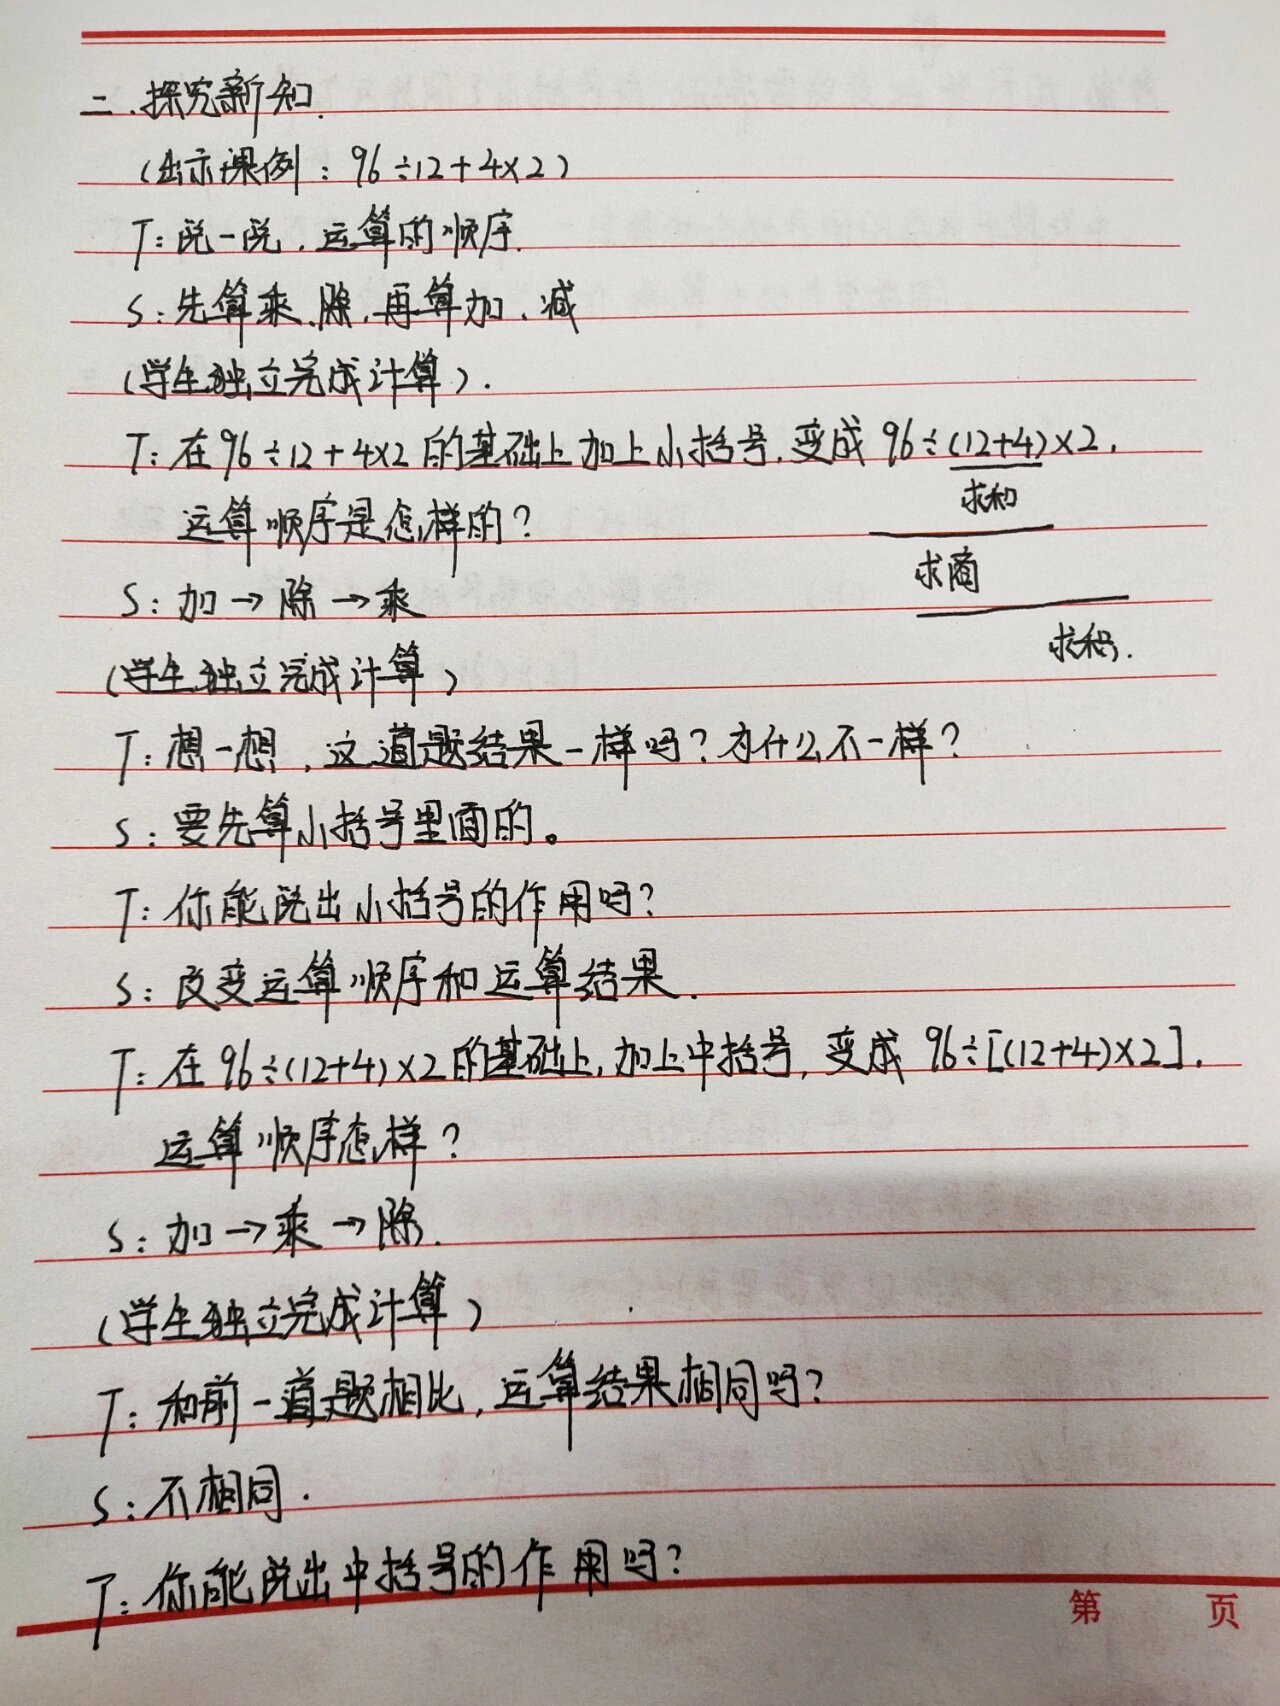 二.探究新知.
(出示课例：96÷12+4×2)
T：说一说，运算的顺序.
S：先算乘、除，再算加、减
(学生独立完成计算).
T：在96÷12+4×2的基础上加上小括号，变成 96÷(12+4)×2.
求和
运算顺序是怎样的？
求商
S：加→除→乘
求积.
(学生独立完成计算)
T：想一想，这道题结果一样吗？为什么不一样？
S：要先算小括号里面的。
T：你能说出小括号的作用吗？
S：改变运算顺序和运算结果.
T：在96÷(12+4)×2的基础上，加上中括号，变成 96÷[(12+4)×2].
运算顺序怎样？
S：加→乘→除.
(学生独立完成计算)
T：和前一道题相比，运算结果相同吗？
S：不相同.
T：你能说出中括号的作用吗？
第 页